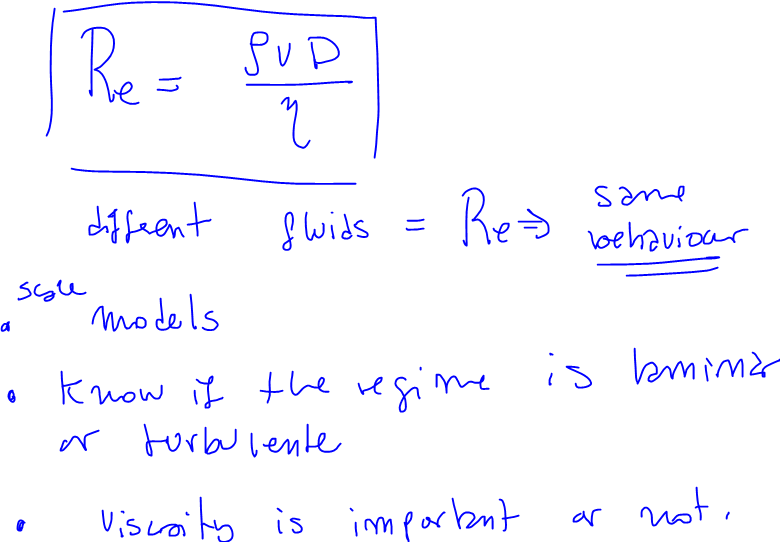 Re = ρvD / η
different fluids = Re ⇒ same behaviour
• scale models
• Know if the regime is laminar
or turbulente
• Viscosity is important or not.